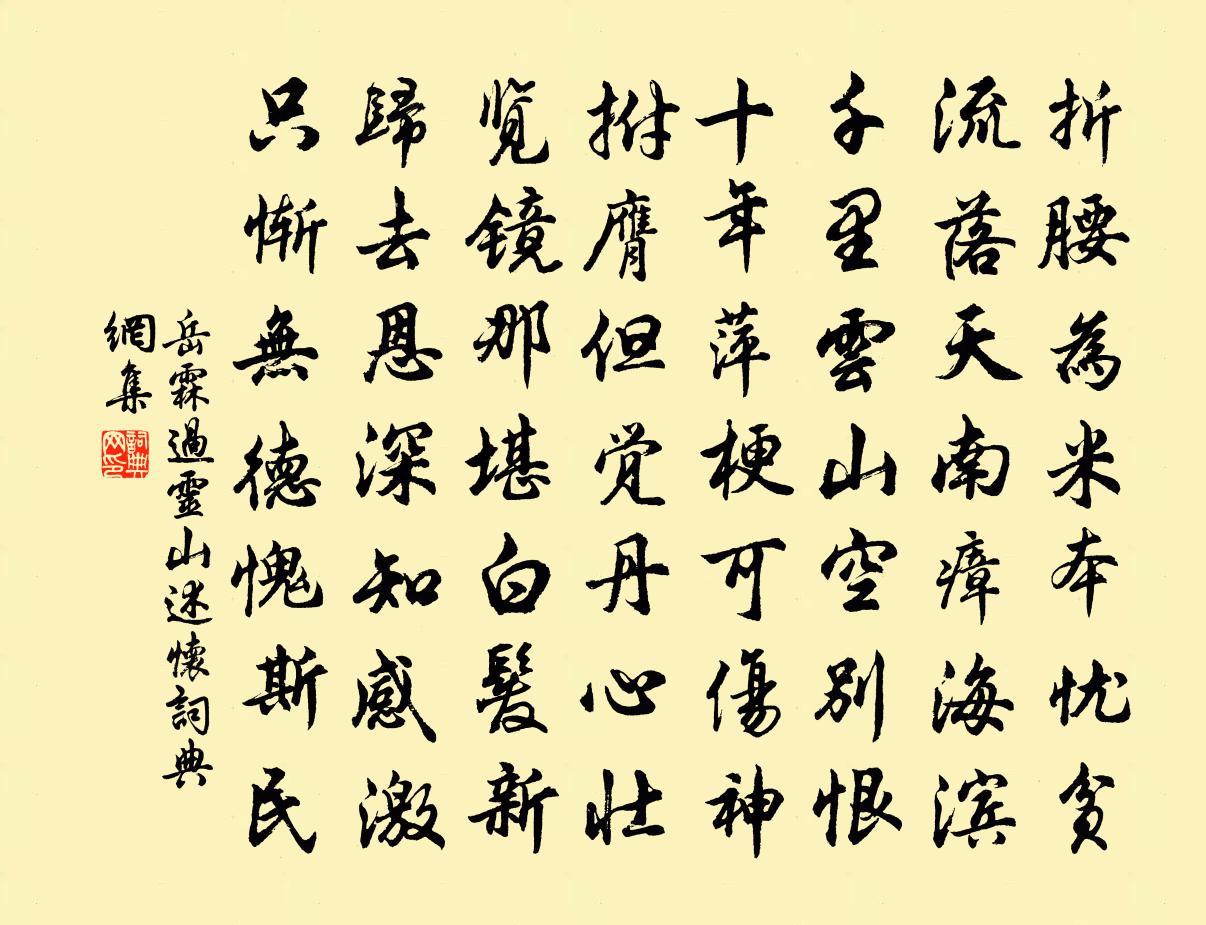 折腰為米本忧贫
流落天南瘴海滨
千里雲山空別恨
十年萍梗可傷神
拊膺但觉丹心壮
览镜那堪白髮新
歸去恩深知感激
只惭無德愧斯民
岳霖過靈山述懷詞典
網集
詞典
网印